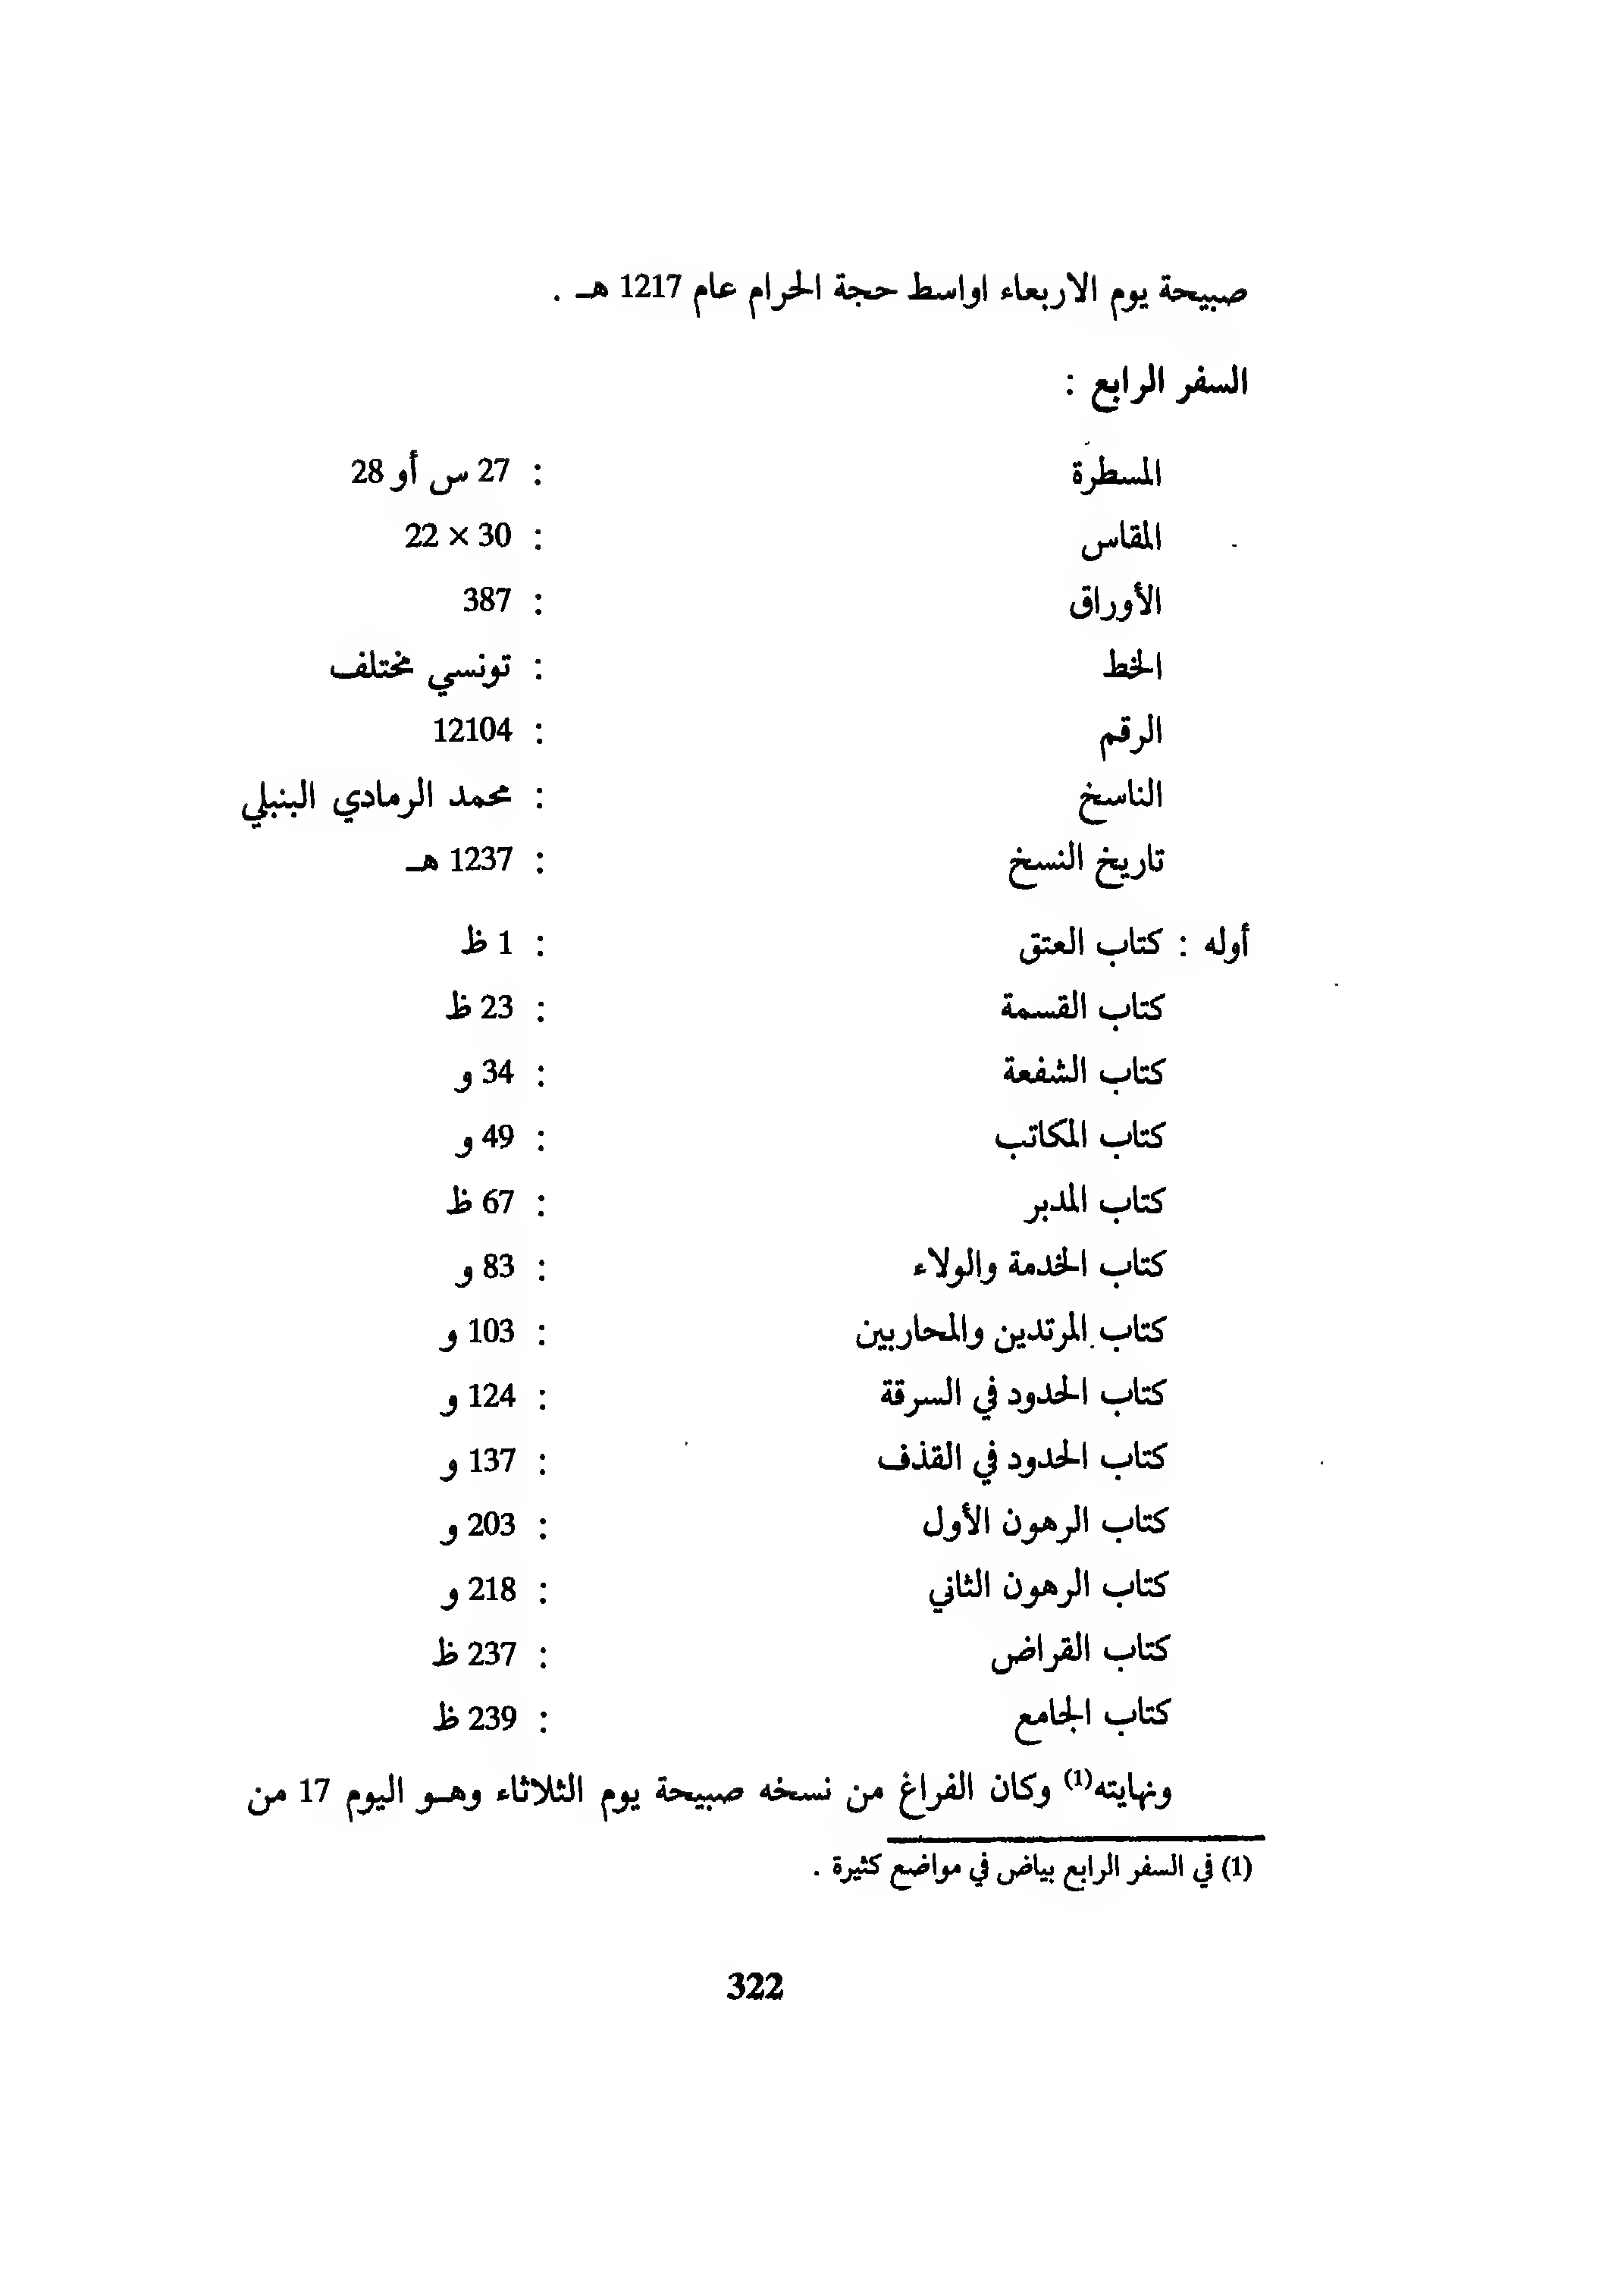 صبيحة يوم الاربعاء اواسط حجة الحرام عام 1217 هـ .
السفر الرابع :
المسطرة : 27 س أو 28
المقاس : 30 × 22
الأوراق : 387
الخط : تونسي مختلف
الرقم : 12104
الناسخ : محمد الرمادي البنبلي
تاريخ النسخ : 1237 هـ
أوله : كتاب العتق : 1 ظ
كتاب القسمة : 23 ظ
كتاب الشفعة : 34 و
كتاب المكاتب : 49 و
كتاب المدبر : 67 ظ
كتاب الخدمة والولاء : 83 و
كتاب المرتدين والمحاربين : 103 و
كتاب الحدود في السرقة : 124 و
كتاب الحدود في القذف : 137 و
كتاب الرهون الأول : 203 و
كتاب الرهون الثاني : 218 و
كتاب القراض : 237 ظ
كتاب الجامع : 239 ظ
ونهايته(1) وكان الفراغ من نسخه صبيحة يوم الثلاثاء وهـو اليوم 17 من
(1) في السفر الرابع بياض في مواضع كثيرة .
322